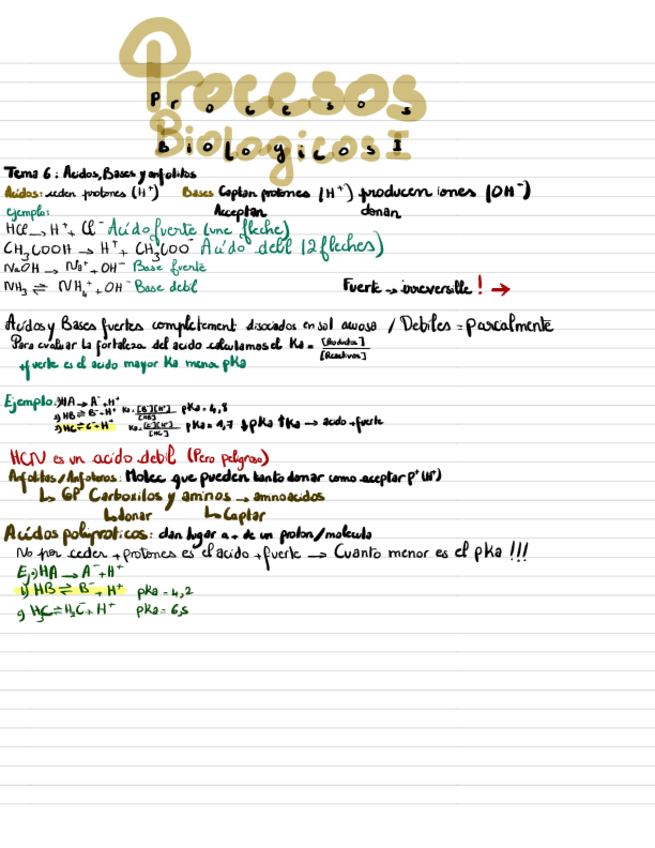 Procesos
Procesos
Biologicos I
Biologicos I
Tema 6: Acidos, Bases y anfolitos
Acidos: ceden protones (H⁺) Bases Captan protones (H⁺) producen iones (OH⁻)
ejemplo: Aceptan donan
HCl → H⁺ + Cl⁻ Acido fuerte (una fleche)
CH₃COOH → H⁺ + CH₃COO⁻ Acido debil (2 fleches)
NaOH → Na⁺ + OH⁻ Base fuerte
NH₃ ⇌ NH₄⁺ + OH⁻ Base debil Fuerte → irreversible ! →
Acidos y Bases fuertes completement disociados en sol acuosa / Debiles = parcialmente
Para evaluar la fortaleza del acido calculamos el Ka = [Productos]/[Reactivos]
+ fuerte es el acido mayor Ka menor pKa
Ejemplo: 1) HA → A⁻ + H⁺
2) HB ⇌ B⁻ + H⁺ Ka = [B⁻][H⁺]/[HB] pKa = 4,8
3) HC ⇌ C⁻ + H⁺ Ka = [C⁻][H⁺]/[HC] pKa = 1,7 ↓pKa ↑Ka → acido + fuerte
HCN es un acido debil (Pero peligroso)
Anfolitos/Anfoteros: Molec que pueden tanto donar como aceptar p⁺ (H⁺)
↳ GP Carboxilos y aminos → aminoacidos
↳ donar ↳ Captar
Acidos poliproticos: dan lugar a + de un proton/molecula
No por ceder + protones es el acido + fuerte → Cuanto menor es el pka !!!
Ej a) HA → A⁻ + H⁺
b) HB ⇌ B⁻ + H⁺ pka = 4,2
c) H₃C ⇌ H₂C⁻ + H⁺ pka = 6,5